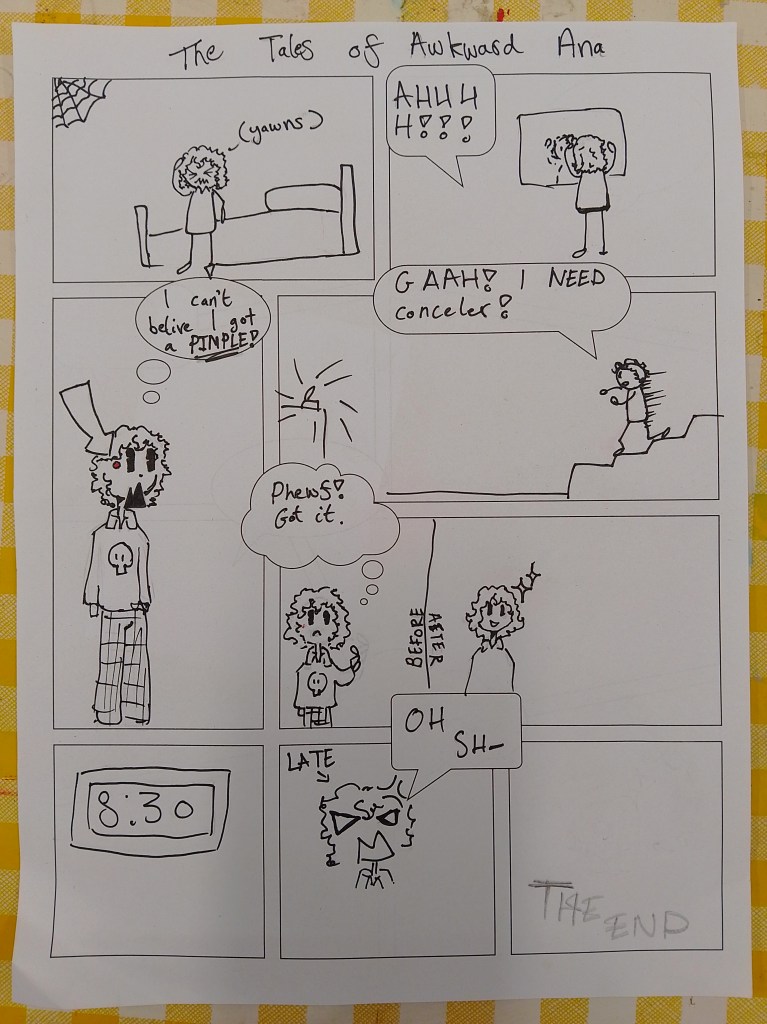 The Tales of Awkward Ana
(yawns)
AHHH
H!!!
I can't
belive I got
a PIMPLE!
GAAH! I NEED
conceler!
Phewf!
Got it.
BEFORE
AFTER
8:30
LATE
OH
SH-
THE
END